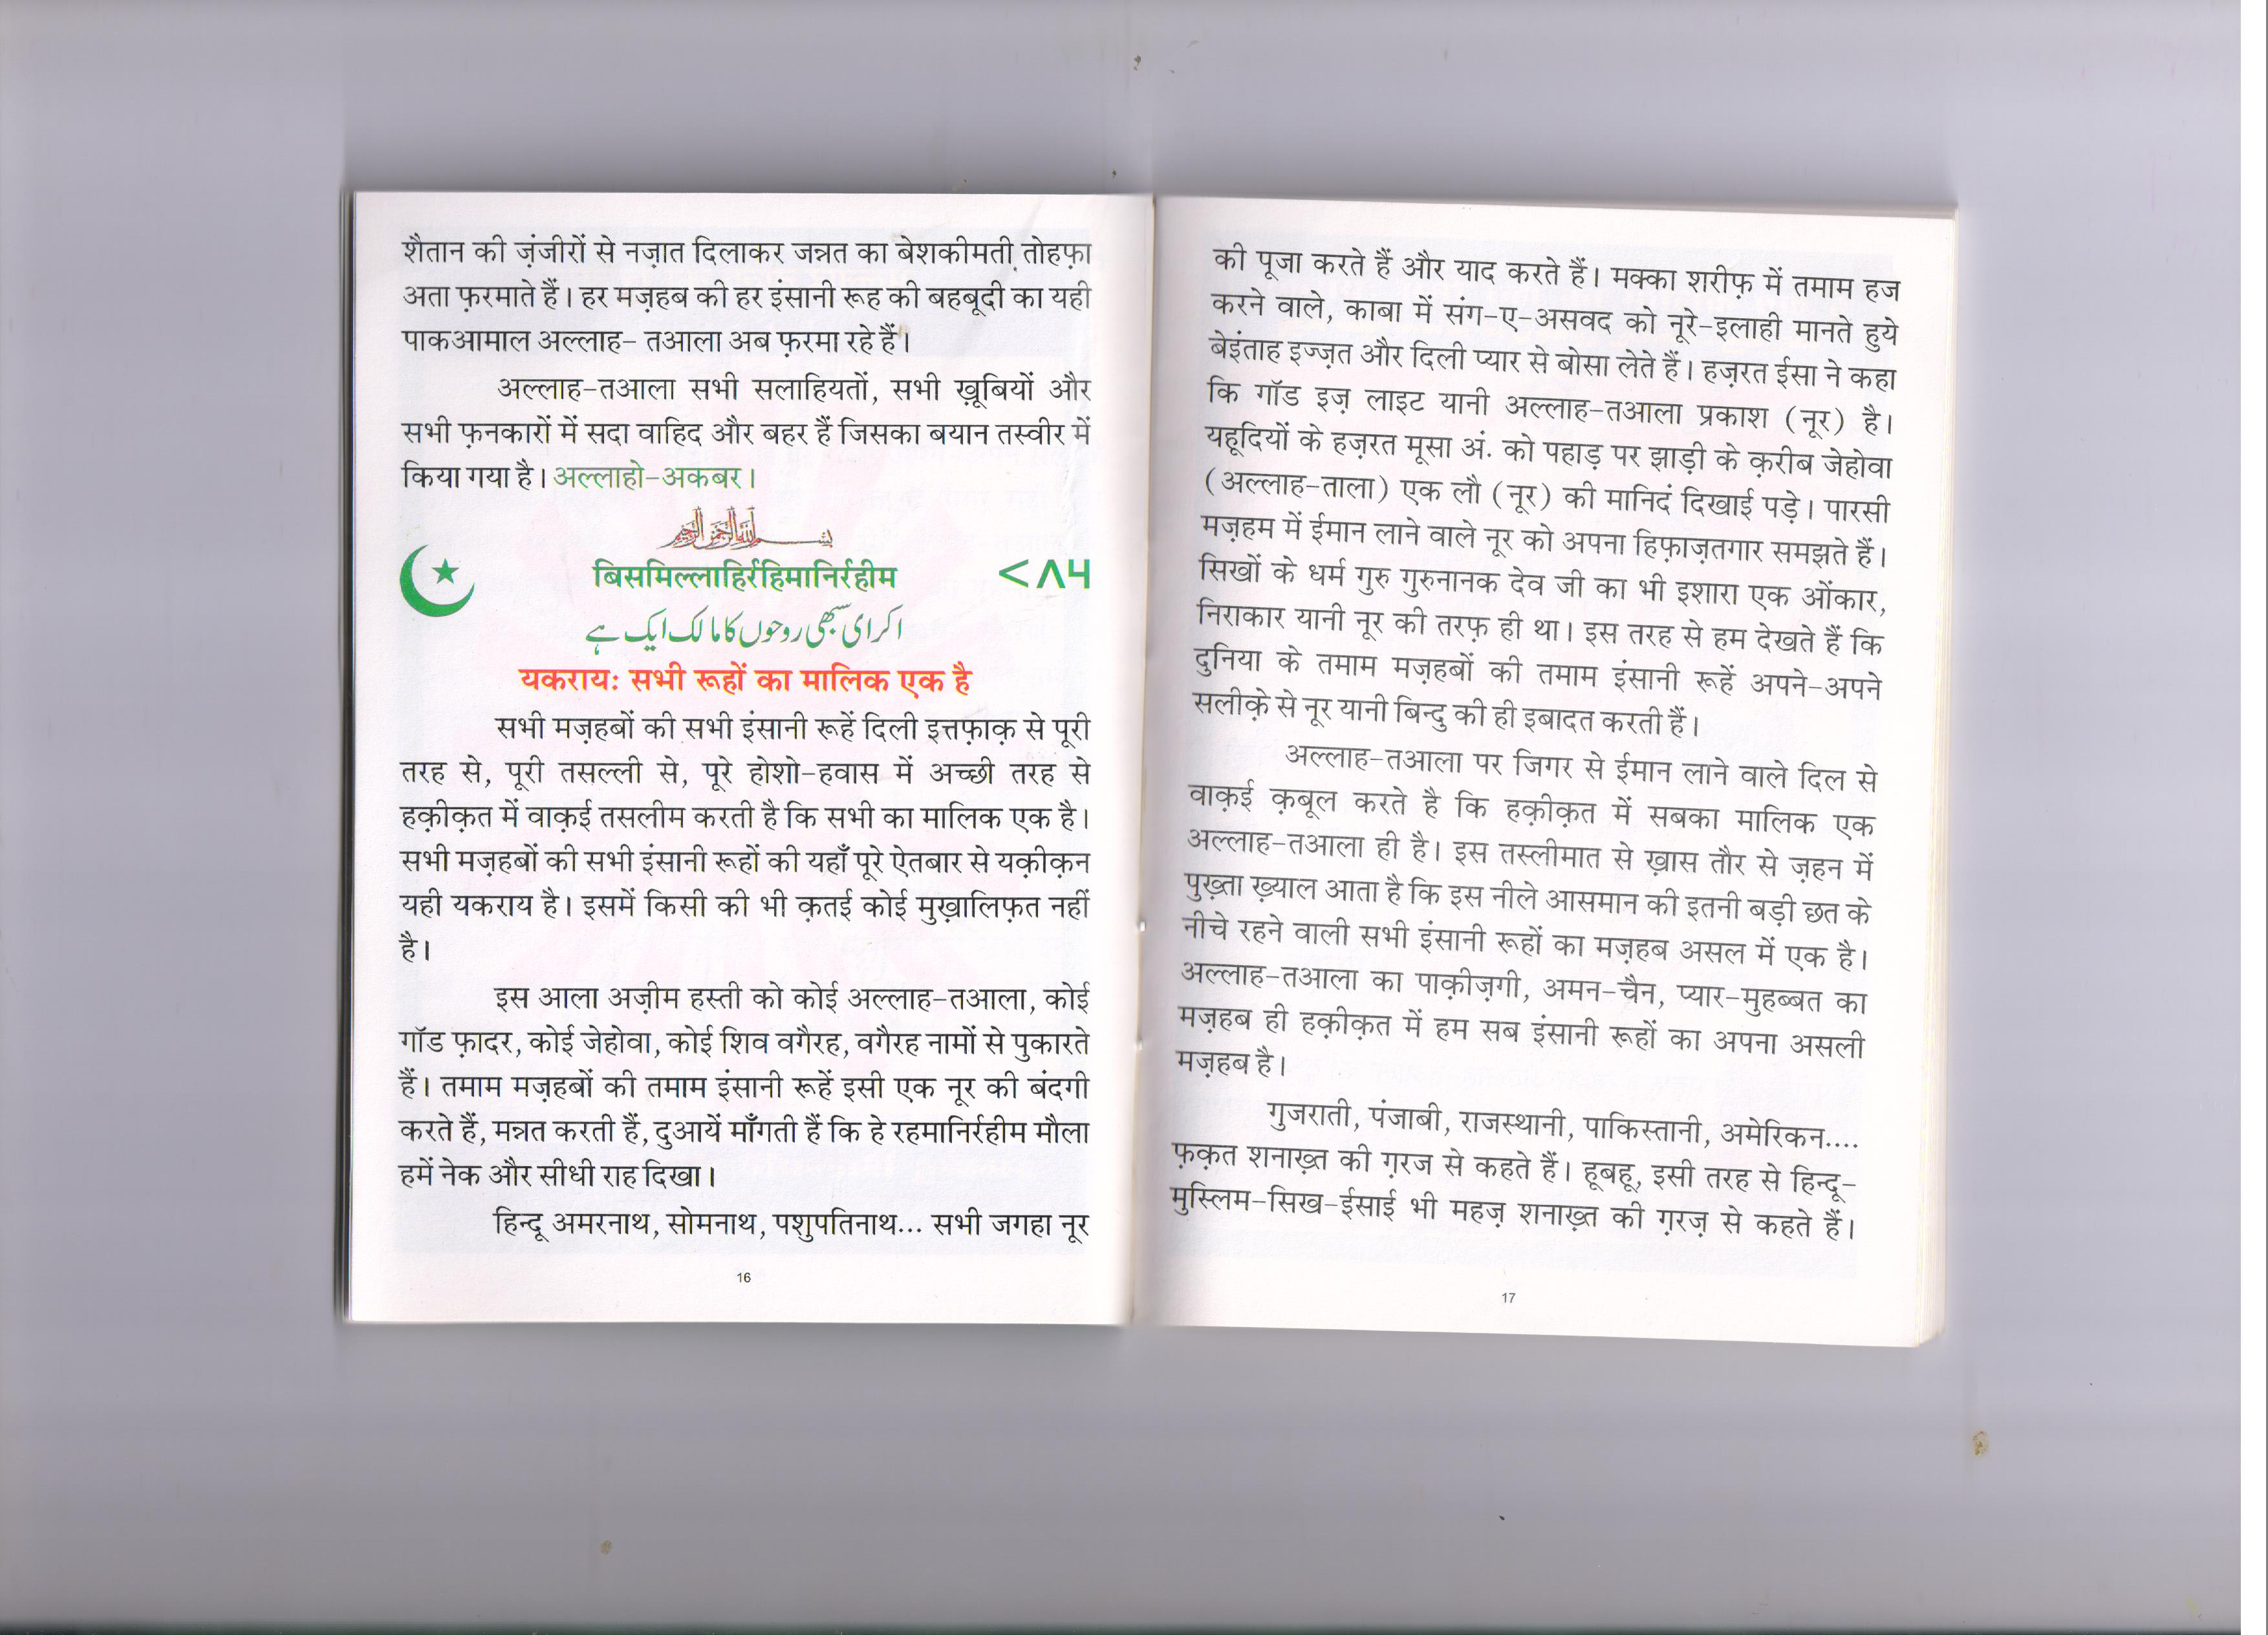 शैतान की ज़ंजीरों से नज़ात दिलाकर जन्नत का बेशकीमती तोहफ़ा
अता फ़रमाते हैं। हर मज़हब की हर इंसानी रूह की बहबूदी का यही
पाकआमाल अल्लाह- तआला अब फ़रमा रहे हैं।
अल्लाह-तआला सभी सलाहियतों, सभी ख़ूबियों और
सभी फ़नकारों में सदा वाहिद और बहर हैं जिसका बयान तस्वीर में
किया गया है। अल्लाहो-अकबर।
بسم اللہ الرحمن الرحیم
बिसमिल्लाहिर्रहिमानिर्रहीम
<८५
اکرای سبھی روحوں کا مالک ایک ہے
यकरायः सभी रूहों का मालिक एक है
सभी मज़हबों की सभी इंसानी रूहें दिली इत्तफ़ाक़ से पूरी
तरह से, पूरी तसल्ली से, पूरे होशो-हवास में अच्छी तरह से
हक़ीक़त में वाक़ई तसलीम करती है कि सभी का मालिक एक है।
सभी मज़हबों की सभी इंसानी रूहों की यहाँ पूरे ऐतबार से यक़ीक़न
यही यकराय है। इसमें किसी की भी क़तई कोई मुख़ालिफ़त नहीं
है।
इस आला अज़ीम हस्ती को कोई अल्लाह-तआला, कोई
गॉड फ़ादर, कोई जेहोवा, कोई शिव वगैरह, वगैरह नामों से पुकारते
हैं। तमाम मज़हबों की तमाम इंसानी रूहें इसी एक नूर की बंदगी
करते हैं, मन्नत करती हैं, दुआयें माँगती हैं कि हे रहमानिर्रहीम मौला
हमें नेक और सीधी राह दिखा।
हिन्दू अमरनाथ, सोमनाथ, पशुपतिनाथ... सभी जगहा नूर
16
की पूजा करते हैं और याद करते हैं। मक्का शरीफ़ में तमाम हज
करने वाले, काबा में संग-ए-असवद को नूरे-इलाही मानते हुये
बेइंताह इज्ज़त और दिली प्यार से बोसा लेते हैं। हज़रत ईसा ने कहा
कि गॉड इज़ लाइट यानी अल्लाह-तआला प्रकाश (नूर) है।
यहूदियों के हज़रत मूसा अं. को पहाड़ पर झाड़ी के क़रीब जेहोवा
(अल्लाह-ताला) एक लौ (नूर) की मानिदं दिखाई पड़े। पारसी
मज़हम में ईमान लाने वाले नूर को अपना हिफ़ाज़तगार समझते हैं।
सिखों के धर्म गुरु गुरुनानक देव जी का भी इशारा एक ओंकार,
निराकार यानी नूर की तरफ़ ही था। इस तरह से हम देखते हैं कि
दुनिया के तमाम मज़हबों की तमाम इंसानी रूहें अपने-अपने
सलीक़े से नूर यानी बिन्दु की ही इबादत करती हैं।
अल्लाह-तआला पर जिगर से ईमान लाने वाले दिल से
वाक़ई क़बूल करते है कि हक़ीक़त में सबका मालिक एक
अल्लाह-तआला ही है। इस तस्लीमात से ख़ास तौर से ज़हन में
पुख़्ता ख़्याल आता है कि इस नीले आसमान की इतनी बड़ी छत के
नीचे रहने वाली सभी इंसानी रूहों का मज़हब असल में एक है।
अल्लाह-तआला का पाक़ीज़गी, अमन-चैन, प्यार-मुहब्बत का
मज़हब ही हक़ीक़त में हम सब इंसानी रूहों का अपना असली
मज़हब है।
गुजराती, पंजाबी, राजस्थानी, पाकिस्तानी, अमेरिकन....
फ़क़त शनाख़्त की ग़रज से कहते हैं। हूबहू, इसी तरह से हिन्दू-
मुस्लिम-सिख-ईसाई भी महज़ शनाख़्त की ग़रज़ से कहते हैं।
17